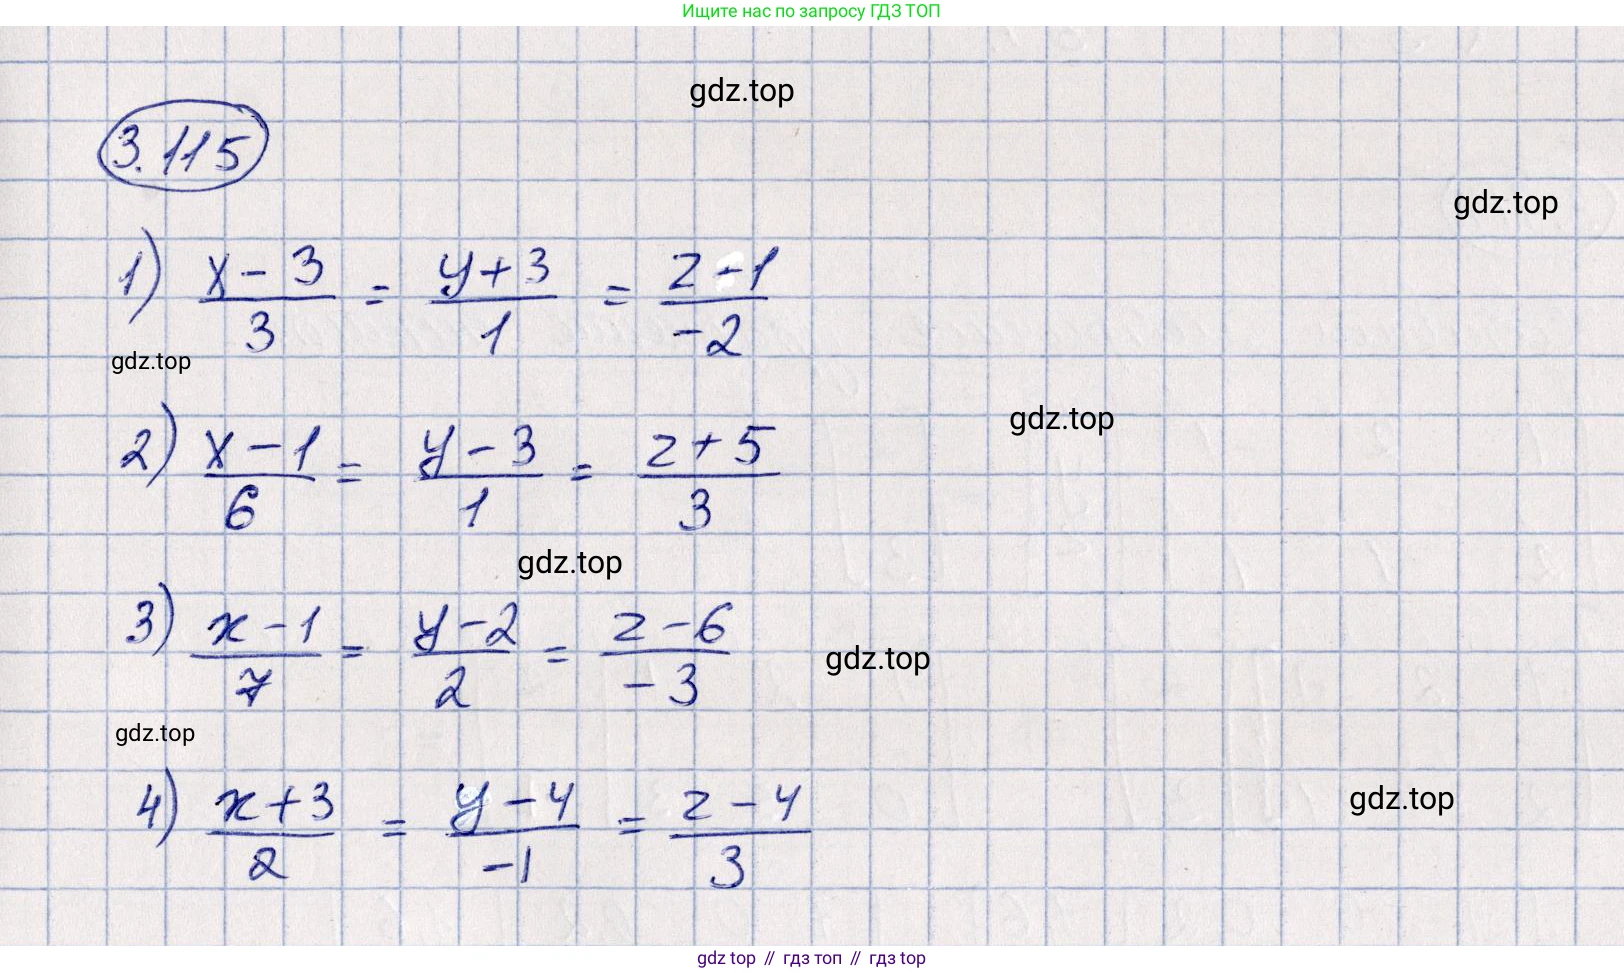 Ищите нас по запросу ГДЗ ТОП
gdz.top
3.115
gdz.top
1) \frac{x-3}{3} = \frac{y+3}{1} = \frac{z-1}{-2}
gdz.top
gdz.top
2) \frac{x-1}{6} = \frac{y-3}{1} = \frac{z+5}{3}
gdz.top
3) \frac{x-1}{7} = \frac{y-2}{2} = \frac{z-6}{-3}
gdz.top
gdz.top
4) \frac{x+3}{2} = \frac{y-4}{-1} = \frac{z-4}{3}
gdz.top
gdz top // гдз топ // гдз top